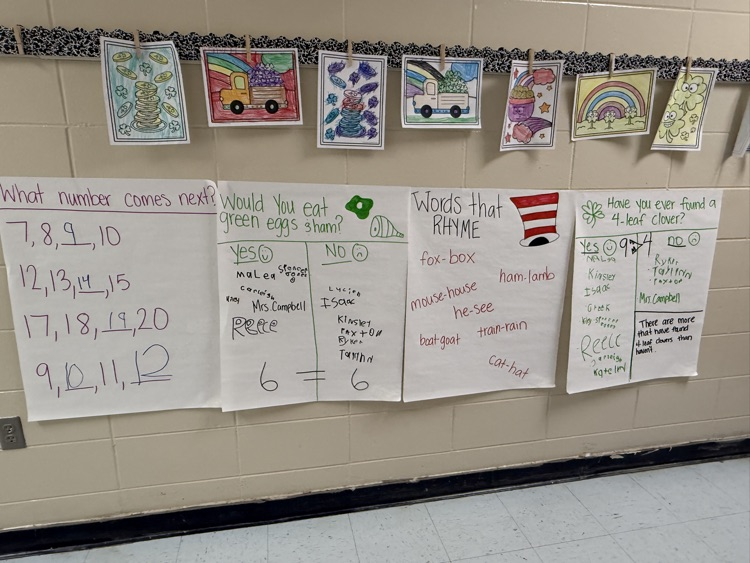 What number comes next?
7, 8, 9, 10
12, 13, 14, 15
17, 18, 19, 20
9, 10, 11, 12
Would You eat
green eggs & ham?
Yes
NO
Malea
Spencer
Mrs. Campbell
Reece
Lucien
Isaac
Kinsley
Paxton
Ryker
6 = 6
Words that
RHYME
fox-box
ham-lamb
mouse-house
he-see
boat-goat
train-rain
cat-hat
Have you ever found a
4-leaf clover?
Yes
9 > 4
no
Malea
Kinsley
Isaac
Reece
Ryker
Paxton
Mrs. Campbell
There are more
that have found
4 leaf clovers than
haven't.